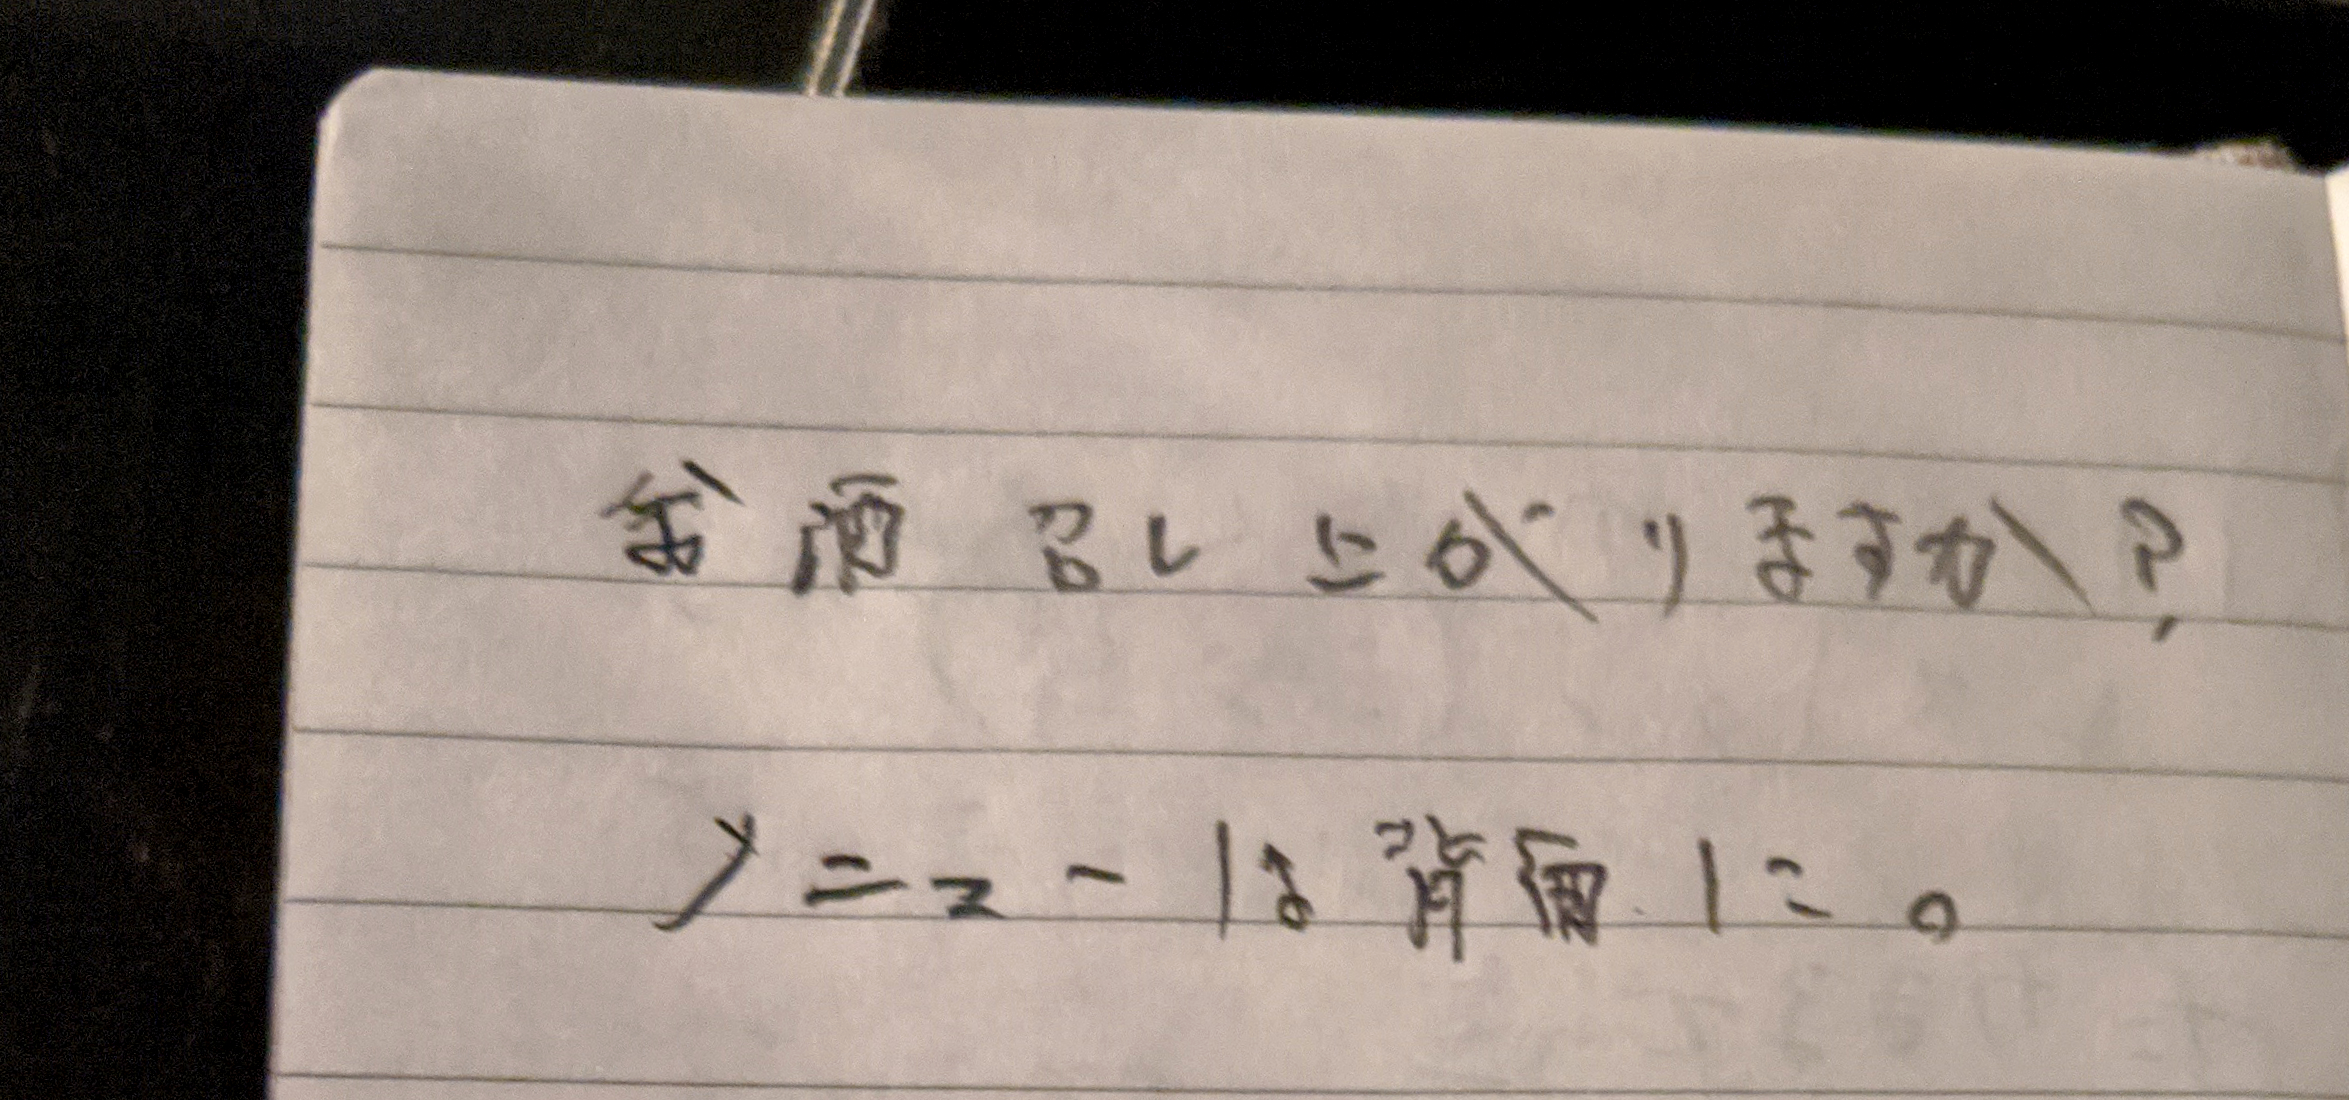 お酒 召し上がりますか?
メニューは背面に。